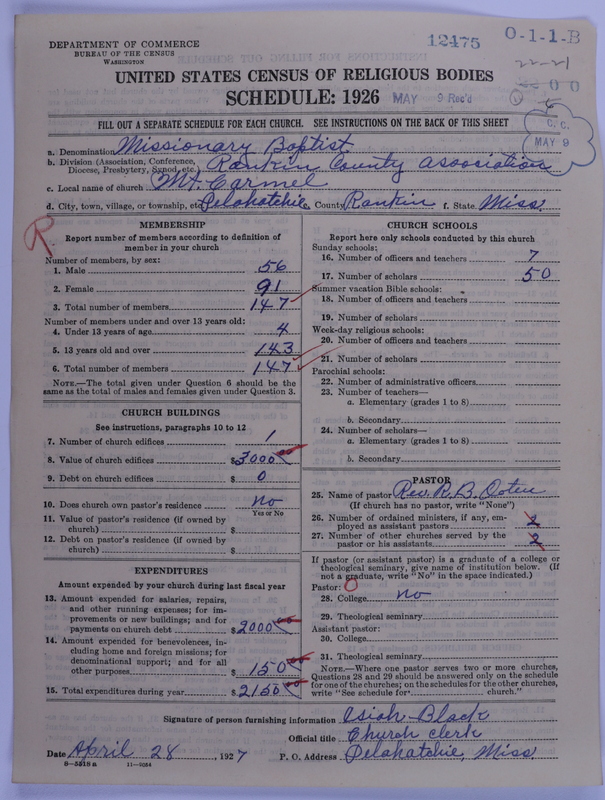 DEPARTMENT OF COMMERCE
BUREAU OF THE CENSUS
WASHINGTON
12475
O-1-1-B
22-21
0 0
UNITED STATES CENSUS OF RELIGIOUS BODIES
SCHEDULE: 1926
MAY 9 Rec'd
C. C.
MAY 9
FILL OUT A SEPARATE SCHEDULE FOR EACH CHURCH. SEE INSTRUCTIONS ON THE BACK OF THIS SHEET
a. Denomination Missionary Baptist
b. Division (Association, Conference, Diocese, Presbytery, Synod, etc.) Rankin County Association
c. Local name of church Mt. Carmel
d. City, town, village, or township, etc. Pelahatchie, County Rankin f. State Miss.
R
MEMBERSHIP
Report number of members according to definition of member in your church
Number of members, by sex:
1. Male 56
2. Female 91
3. Total number of members 147
Number of members under and over 13 years old:
4. Under 13 years of age 4
5. 13 years old and over 143
6. Total number of members 147
NOTE.—The total given under Question 6 should be the same as the total of males and females given under Question 3.
CHURCH BUILDINGS
See instructions, paragraphs 10 to 12
7. Number of church edifices 1
8. Value of church edifices $3000 00
9. Debt on church edifices $ 0
10. Does church own pastor's residence no
Yes or No
11. Value of pastor's residence (if owned by church) $
12. Debt on pastor's residence (if owned by church) $
EXPENDITURES
Amount expended by your church during last fiscal year
13. Amount expended for salaries, repairs, and other running expenses; for improvements or new buildings; and for payments on church debt $2000 00
14. Amount expended for benevolences, including home and foreign missions; for denominational support; and for all other purposes $ 150 00
15. Total expenditures during year $2150 00
CHURCH SCHOOLS
Report here only schools conducted by this church
Sunday schools:
16. Number of officers and teachers 7
17. Number of scholars 50
Summer vacation Bible schools:
18. Number of officers and teachers
19. Number of scholars
Week-day religious schools:
20. Number of officers and teachers
21. Number of scholars
Parochial schools:
22. Number of administrative officers
23. Number of teachers—
a. Elementary (grades 1 to 8)
b. Secondary
24. Number of scholars—
a. Elementary (grades 1 to 8)
b. Secondary
PASTOR
25. Name of pastor Rev. R. B.
(If church has no pastor, write "None")
26. Number of ordained ministers, if any, employed as assistant pastors 2
27. Number of other churches served by the pastor or his assistants 2
If pastor (or assistant pastor) is a graduate of a college or theological seminary, give name of institution below. (If not a graduate, write "No" in the space indicated.)
Pastor: O
28. College no
29. Theological seminary
Assistant pastor:
30. College
31. Theological seminary
NOTE.—Where one pastor serves two or more churches, Questions 28 and 29 should be answered only on the schedule for one of the churches; on the schedules for the other churches, write "See schedule for church."
Signature of person furnishing information Esiah Black
Official title Church clerk
Date April 28 1927 P. O. Address Pelahatchie, Miss.
11—9064